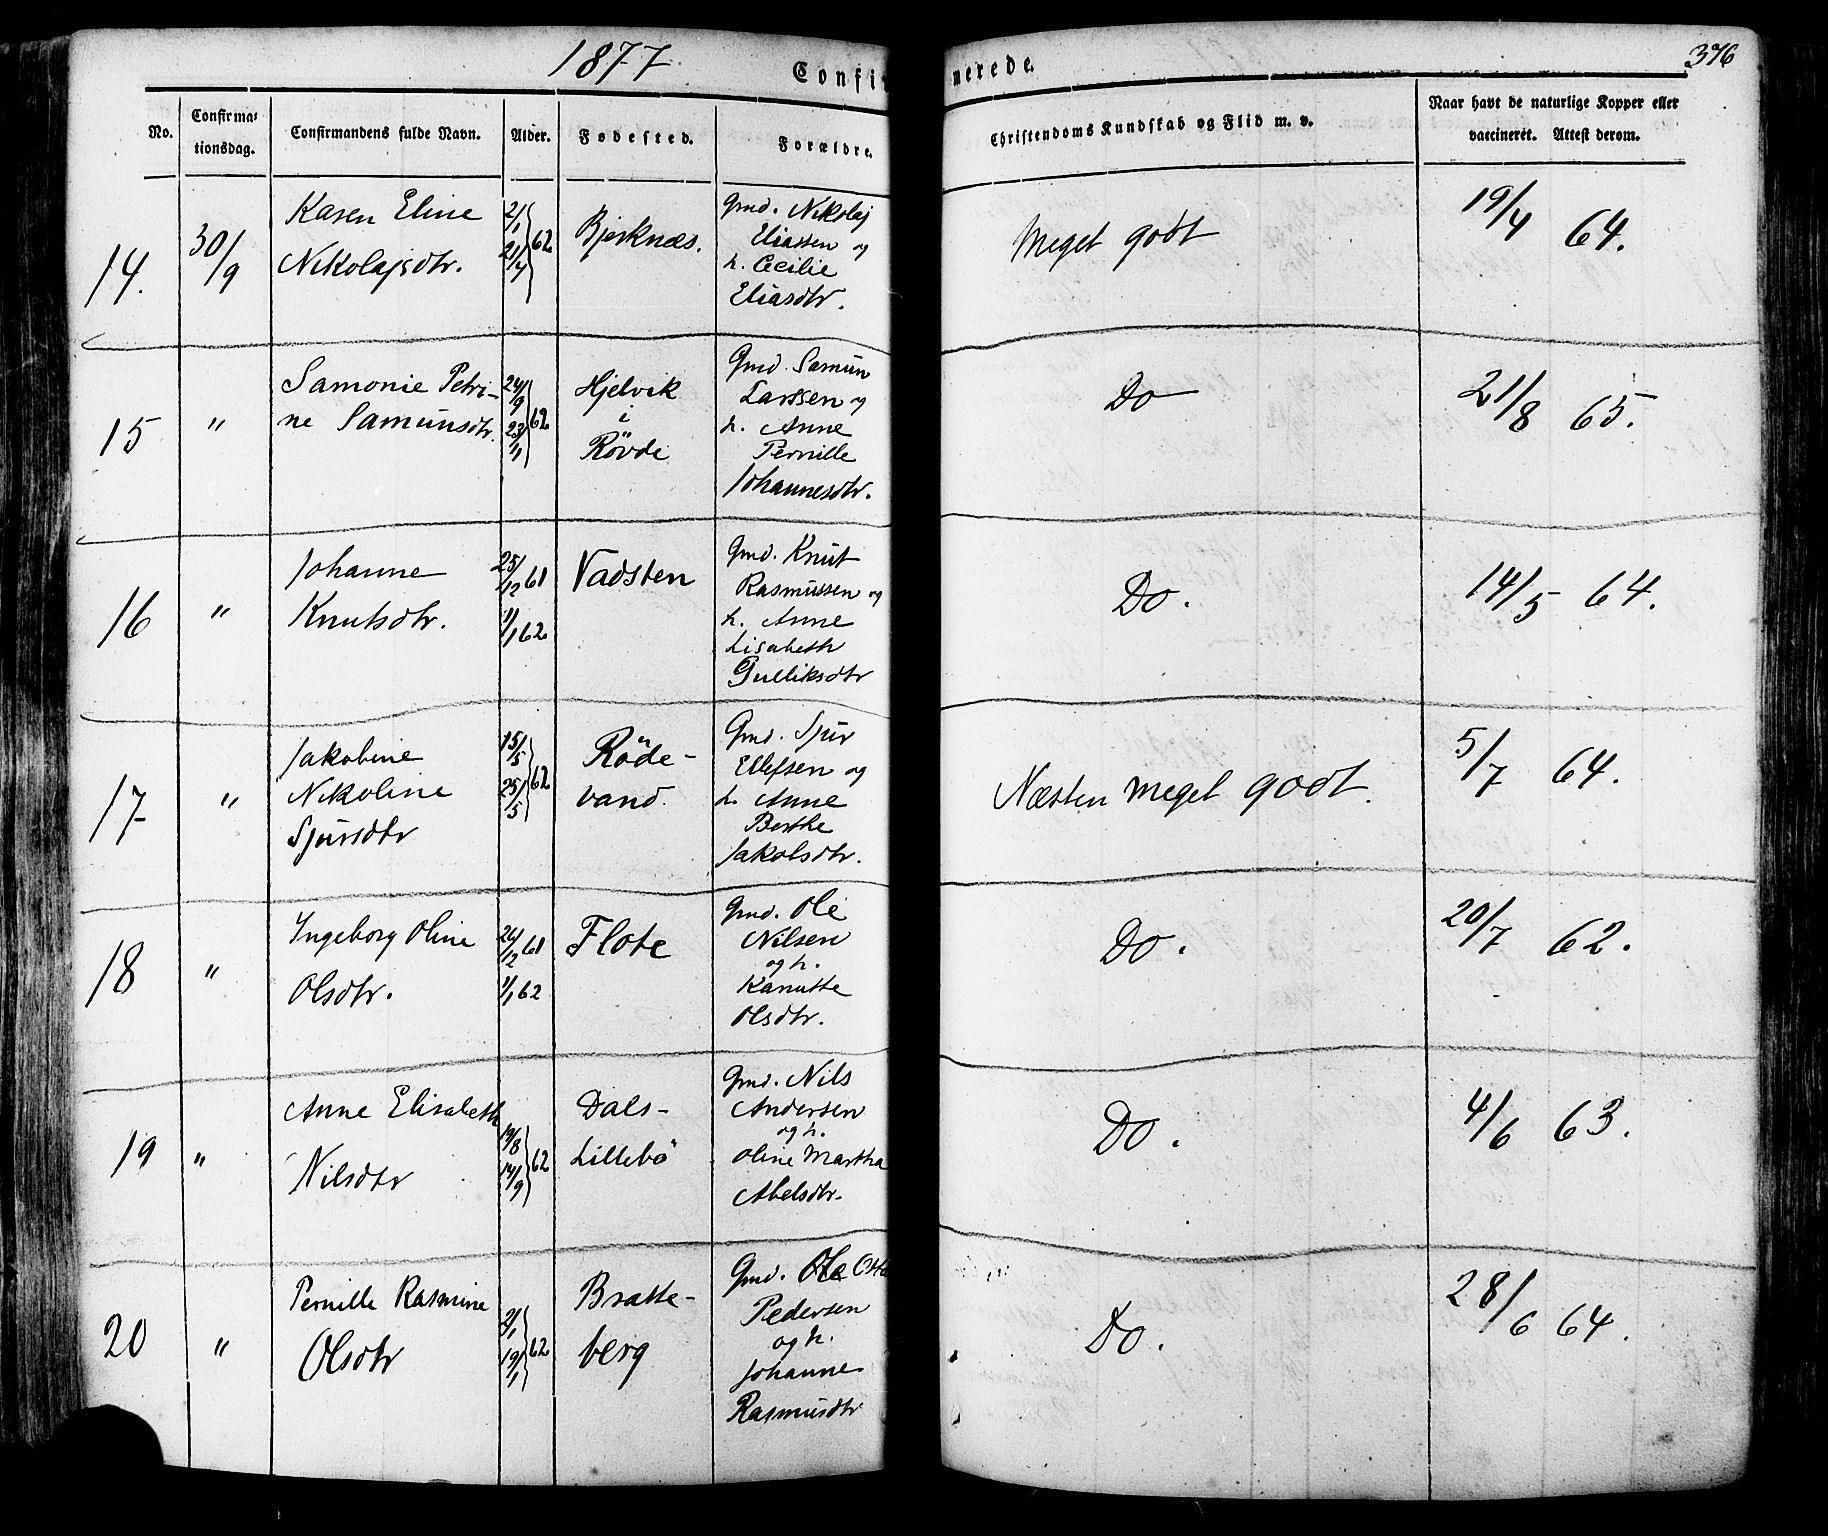 1877
Confir
merede.
376
No.
Confirma-
tionsdag.
Confirmandens fulde Navn.
Alder.
Fødested.
Forældre.
Christendoms Kundskab og Flid m. v.
Naar havt de naturlige Kopper eller
vaccineret. Attest derom.
14. 30/9
Karen Eline
Nikolajsdtr.
2/1
21/4 } 62
Bjerknæs.
Gmd. Nikolaj
Eliassen og
h. Cecilie
Eliasdtr.
Meget godt
19/4 64.
15 "
Samonie Petri-
ne Samunsdtr.
24/9
23/1 } 62
Hjelvik
i
Røvde
Gmd. Samun
Larssen og
h. Anne
Pernille
Johannesdtr.
Do
21/8 65.
16 "
Johanne
Knutsdtr.
25/12 61
1/1 62
Vadsten
Gmd. Knut
Rasmussen og
h. Anne
Lisabeth
Gulliksdtr
Do.
14/5 64.
17 "
Jakobine
Nikoline
Sjursdtr
15/5
25/5 } 62
Røde-
vand.
Gmd. Sjur
Ellefsen og
h. Anne
Berthe
Jakobsdtr.
Næsten meget godt.
5/7 64.
18 "
Ingeborg Oline
Olsdtr.
26/12 61
1/1 62
Flote
Gmd. Ole
Nilsen
og h.
Kanutte
Olsdtr.
Do.
20/7 62.
19 "
Anne Elisabeth
Nilsdtr
19/8
14/9 } 62
Dals-
Lillebø
Gmd. Nils
Andersen
og h.
Oline Martha
Abelsdtr.
Do.
4/6 63.
20 "
Pernille Rasmine
Olsdtr
2/1
19/1 } 62
Bratte-
berg
Gmd. Ole
Pedersen
og h.
Johanne
Rasmusdtr
Do.
28/6 64.